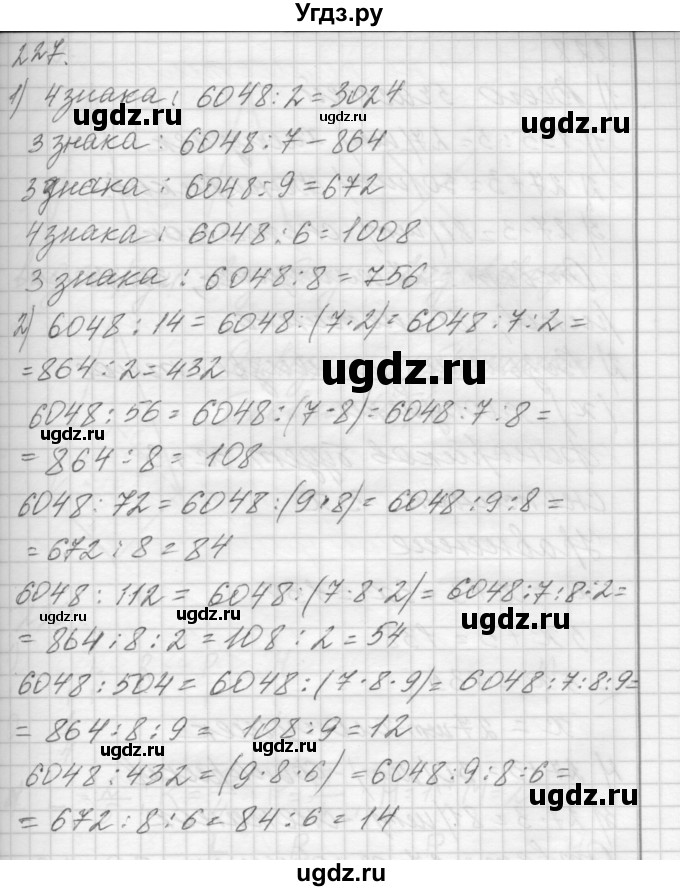 Угдз.ру
227.
1) 4 знака : 6048 : 2 = 3024
ugdz.ru
ugdz.ru
3 знака : 6048 : 7 - 864
3 знака : 6048 : 9 = 672
ugdz.ru
4 знака : 6048 : 6 = 1008
3 знака : 6048 : 8 = 756
ugdz.ru
2) 6048 : 14 = 6048 : (7 · 2) = 6048 : 7 : 2 =
= 864 : 2 = 432
ugdz.ru
6048 : 56 = 6048 : (7 · 8) = 6048 : 7 : 8 =
ugdz.ru
= 864 : 8 = 108
ugdz.ru
6048 : 72 = 6048 : (9 · 8) = 6048 : 9 : 8 =
= 672 : 8 = 84
6048 : 112 = 6048 : (7 · 8 · 2) = 6048 : 7 : 8 : 2 =
ugdz.ru
ugdz.ru
ugdz.ru
= 864 : 8 : 2 = 108 : 2 = 54
6048 : 504 = 6048 : (7 · 8 · 9) = 6048 : 7 : 8 : 9 =
= 864 : 8 : 9 = 108 : 9 = 12
ugdz.ru
ugdz.ru
6048 : 432 = (9 · 8 · 6) = 6048 : 9 : 8 : 6 =
ugdz.ru
= 672 : 8 : 6 = 84 : 6 = 14
ugdz.ru